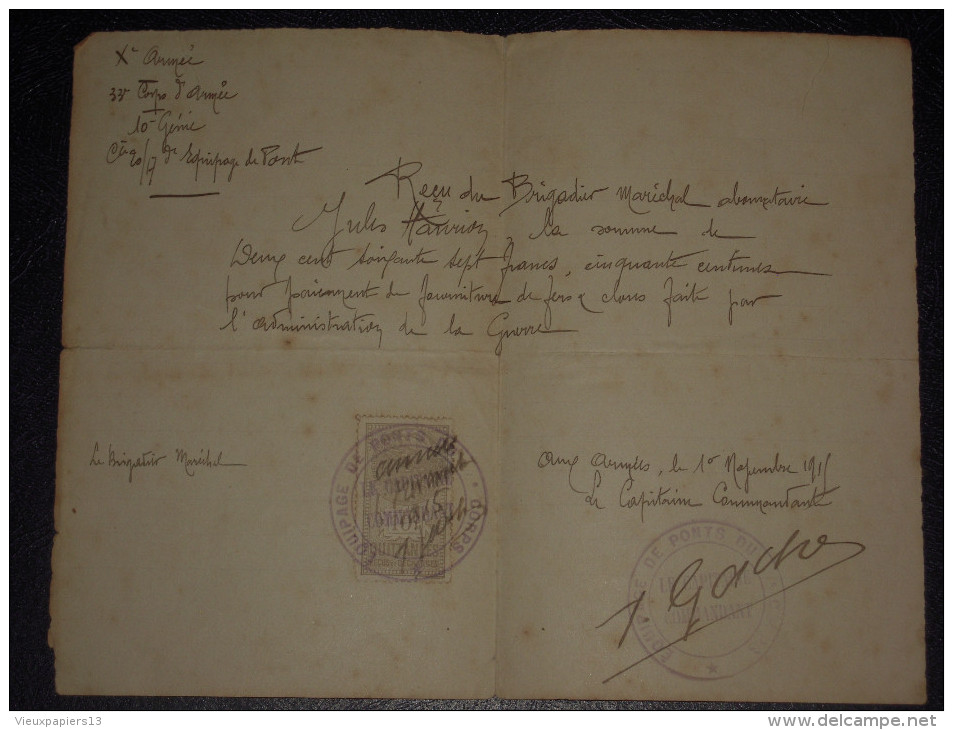 Xe Armée
33e Corps d'Armée
10e Génie
Cie 20/17 de Equipage de Pont
Reçu du Brigadier Maréchal abonnataire
Jules la somme de
Deux cent soixante sept francs, cinquante centimes
pour paiement de fourniture de fers & clous fait par
l'administration de la Guerre
Le Brigadier Maréchal
EQUIPAGE DE PONTS CORPS
QUITTANCES
Aux Armées, le 10 Novembre 1915
Le Capitaine Commandant
EQUIPAGE DE PONTS DU
LE CAPITAINE
COMMANDANT
Gache
Vieuxpapiers13
www.delcampe.net